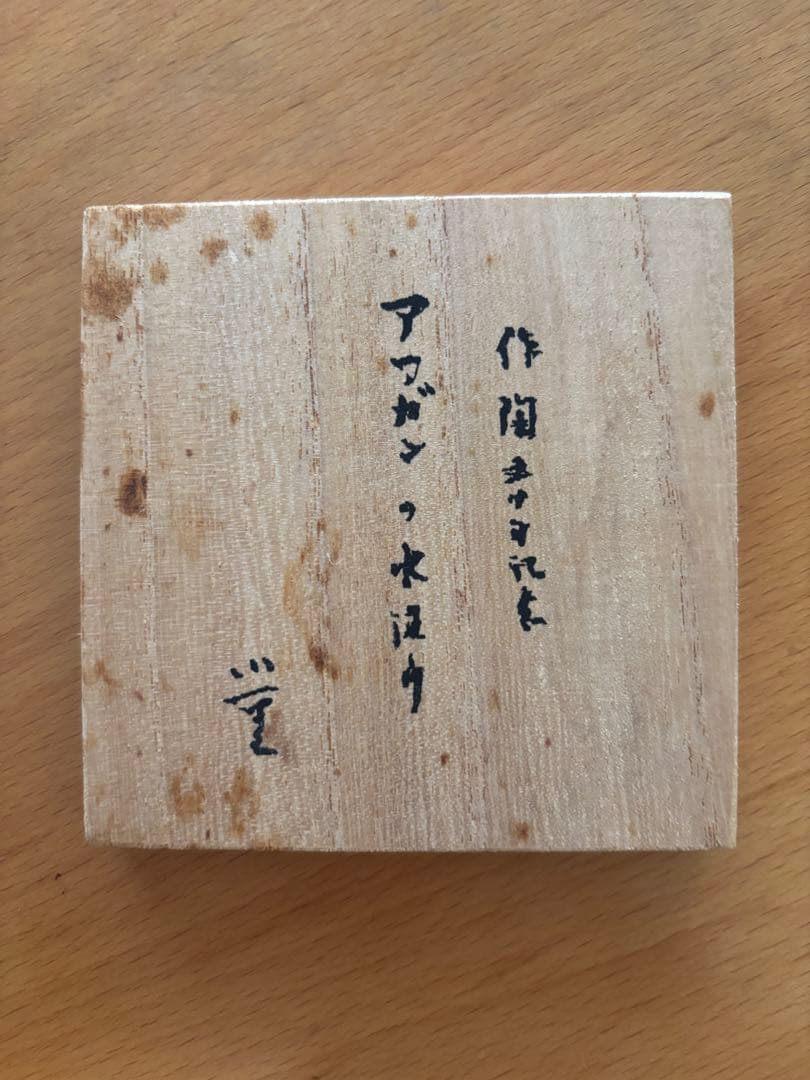 作陶五十年記念
アフガンの水汲